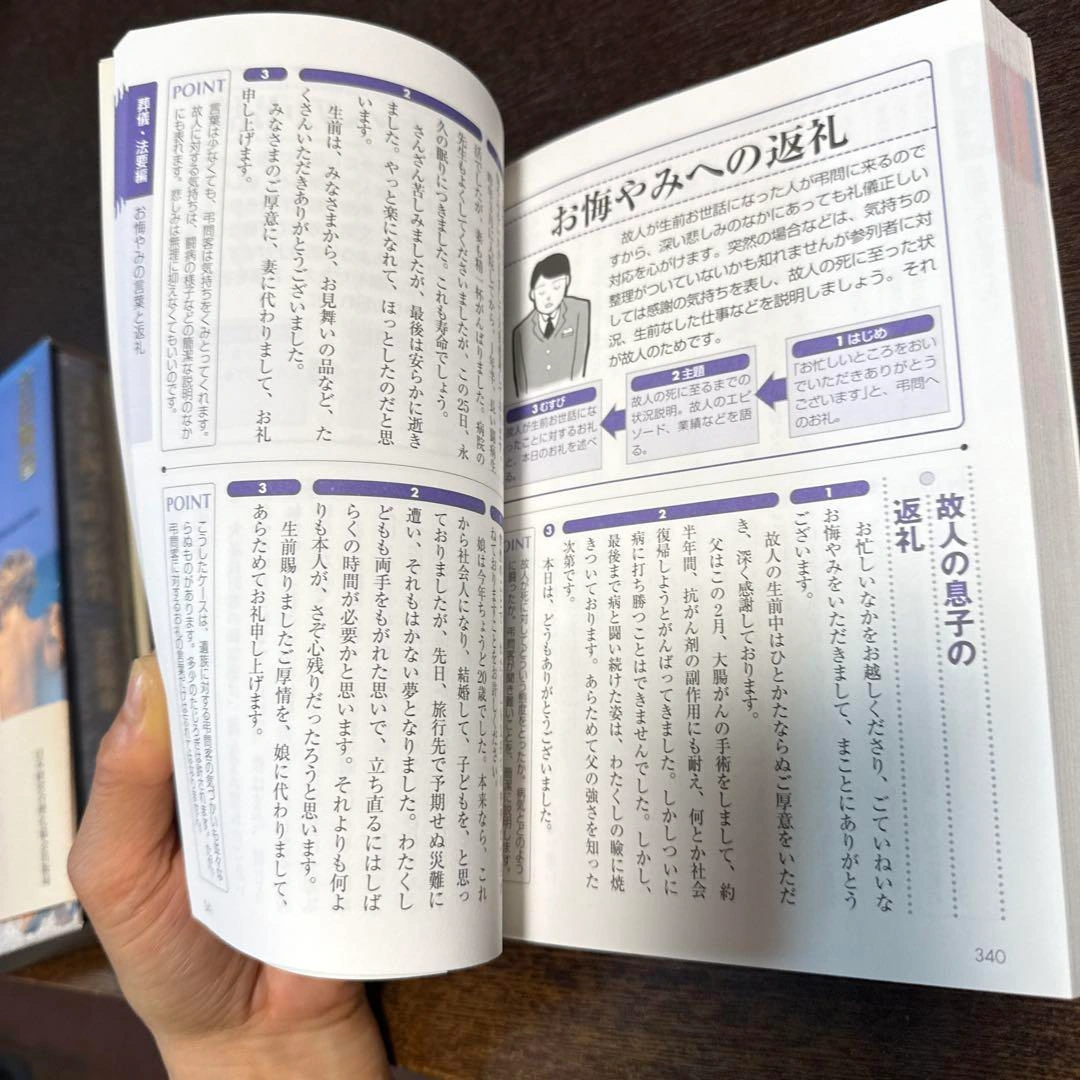 お悔やみへの返礼
故人が生前お世話になった人が弔問に来るので
すから、深い悲しみのなかにあっても礼儀正しい
対応を心がけます。突然の場合などは、気持ちの
整理がついていないかも知れませんが参列者に対
しては感謝の気持ちを表し、故人の死に至った状
況、生前なした仕事などを説明しましょう。それ
が故人のためです。
1 はじめ
「お忙しいところをおい
でいただきありがとう
ございます」と、弔問へ
のお礼。
2 主題
故人の死に至るまでの
状況説明。故人のエピ
ソード、業績などを語
る。
3 むすび
故人が生前お世話にな
ったことに対するお礼
と、本日のお礼を述べ
る。
故人の息子の
返礼
1
お忙しいなかをお越しくださり、ごていねいな
お悔やみをいただきまして、まことにありがとう
ございます。
2
故人の生前中はひとかたならぬご厚意をいただ
き、深く感謝しております。
父はこの2月、大腸がんの手術をしまして、約
半年間、抗がん剤の副作用にも耐え、何とか社会
復帰しようとがんばってきました。しかしついに
病に打ち勝つことはできませんでした。しかし、
最後まで病と闘い続けた姿は、わたくしの瞼に焼
きついております。あらためて父の強さを知った
次第です。
3
本日は、どうもありがとうございました。
POINT
故人が死に対してどういう態度をとったか。病気とどのよう
に闘ったか。弔問客が聞き難いことを、簡潔に説明します。
340
2
活でしたが、妻も精一杯がんばりました。病院の
先生もよくしてくださいましたが、この25日、永
久の眠りにつきました。これも寿命でしょう。
さんざん苦しみましたが、最後は安らかに逝き
ました。やっと楽になれて、ほっとしたのだと思
います。
生前は、みなさまから、お見舞いの品など、た
くさんいただきありがとうございました。
3
みなさまのご厚意に、妻に代わりまして、お礼
申し上げます。
POINT
言葉は少なくても、弔問客は気持ちをくみとってくれます。
故人に対する気持ちは、闘病の様子などの簡潔な説明のなか
にも表れます。悲しみは無理に抑えなくてもいいのです。
葬儀・法要編
お悔やみの言葉と返礼
2
娘は今年ちょうど20歳でした。本来なら、これ
から社会人になり、結婚して、子どもを、と思っ
ておりましたが、先日、旅行先で予期せぬ災難に
遭い、それもはかない夢となりました。わたくし
どもも両手をもがれた思いで、立ち直るにはしば
らくの時間が必要かと思います。それよりも何よ
りも本人が、さぞ心残りだったろうと思います。
3
生前賜りましたご厚情を、娘に代わりまして、
あらためてお礼申し上げます。
POINT
こうしたケースは、遺族に対する弔問客の気づかいも
らぬものがあります。
弔問客に対する